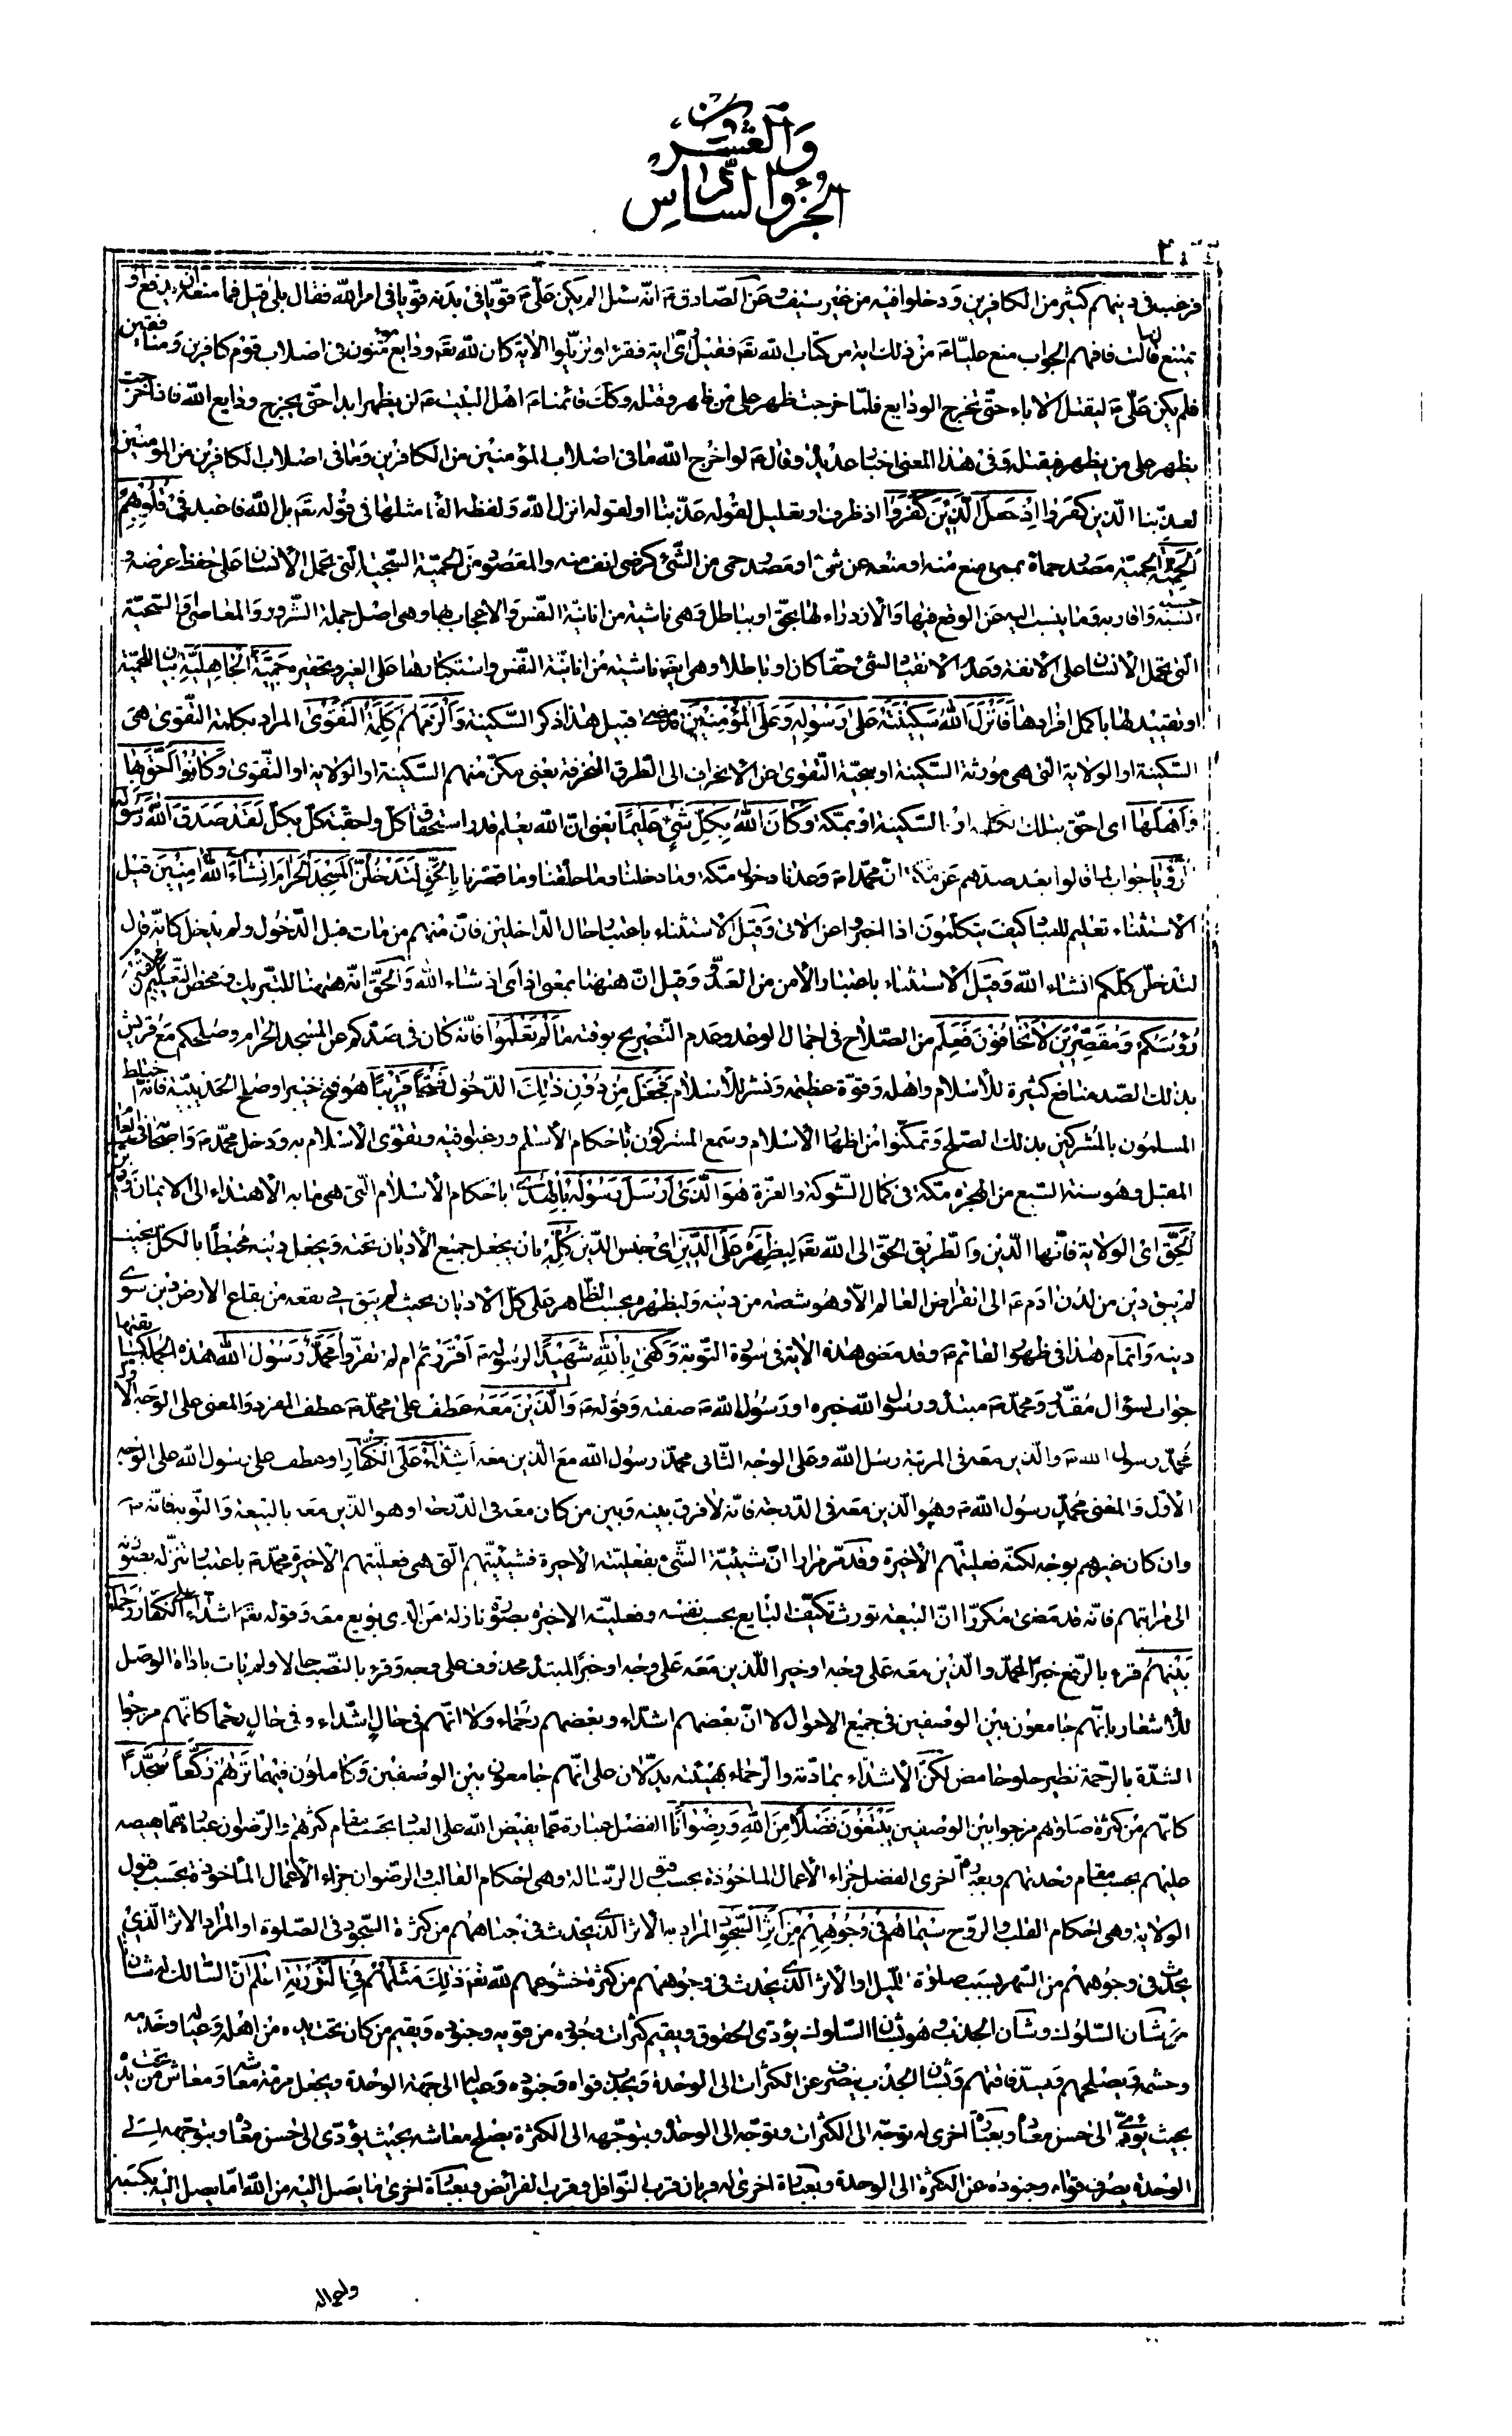 الجزؤ السادس
والعشرون
فرغب فى دينهم كثير من الكافرين ودخلوا فيه من غير سيف وعن الصّادق ع انّه سئل الم يكن علىّ ع قويّا فى بدنه قويّا فى امر الله فقال بلى قيل فما منعه ان يدفع او
يمتنع قال سئلت فافهم الجواب منع عليّا ع من ذلك اية من كتاب الله تعالى فقيل واىّ اية فقرء لو تزيّلوا الاية كان لله تعالى ودايع مؤمنون فى اصلاب قوم كافرين ومنافقين
فلم يكن علىّ ع ليقتل الاباء حتّى تخرج الودايع فلمّا خرجت ظهر على من ظهر وقتله وكك قائمنا ع اهل البيت ع لن يظهر ابدا حتّى يخرج ودايع الله فاذا خرجت
يظهر على من يظهر فيقتله وفى هذا المعنى اخبار عديدة وقال ع لو اخرج الله ما فى اصلاب المؤمنين من الكافرين وما فى اصلاب الكافرين من المؤمنين
لعذّبنا الّذين كفروا اِذْ جَعَلَ الَّذِينَ كَفَرُوا اذ ظرف او تعليل لقوله عذّبنا او لقوله انزل الله ولفظة الفاء مثلها فى قوله تعالى بل الله فاعبد فِى قُلُوبِهِمُ
الْحَمِيَّةَ الحميّة مصدر حماه بمعنى منع منه او منعه عن شئ او مصدر حمى من الشّئ كرضى انف منه والمقصود من الحميّة السّجيّة الّتى تحمل الانسان على حفظ عرضه و
حسبه ونسبه واقاربه وما ينسب اليه عن الوقع فيها والازدراء لها بحقّ او بباطل وهى ناشية من انانيّة النّفس والاعجاب بها وهى اصل جملة الشّرور والمعاصى والسّجيّة
الّتى تحمل الانسان على الانفة وعدم الانقياد لشئ حقّا كان او باطلا وهى ايضا ناشية من انانيّة النّفس واستكبارها على الغير وتحقيره حَمِيَّةَ الْجَاهِلِيَّةِ بيان للحميّة
او تقييد لها باكمل افرادها فَاَنْزَلَ اللهُ سَكِينَتَهُ عَلَى رَسُولِهِ وَعَلَى الْمُؤْمِنِينَ قد مضى قبيل هذا ذكر السّكينة وَاَلْزَمَهُمْ كَلِمَةَ التَّقْوَى المراد بكلمة التّقوى هى
السّكينة او الولاية الّتى هى مورثة السّكينة او سجيّة التّقوى عن الانحراف الى الطّرق المنحرفة يعنى مكّن منهم السّكينة او الولاية او التّقوى وَكَانُوا اَحَقَّ بِهَا
وَاَهْلَهَا اى احقّ بتلك الكلمة او السّكينة او بمكّة وَكَانَ اللهُ بِكُلِّ شَىْءٍ عَلِيمًا يعنى انّ الله يعلم قدر استحقاق كلّ واحقّيّة كلّ بكلّ لَقَدْ صَدَقَ اللهُ رَسُولَهُ
الرُّؤْيَا جواب لما قالوا بعد صدّهم عن مكّة انّ محمّدا ع وعدنا دخول مكّة وما دخلنا وما حلّقنا وما قصّرنا بِالْحَقِّ لَتَدْخُلُنَّ الْمَسْجِدَ الْحَرَامَ اِنْ شَاءَ اللهُ اٰمِنِينَ قيل
الاستثناء تعليم للعباد كيف يتكلّمون اذا اخبروا عن الاتى وقيل الاستثناء باعتبار حال الدّاخلين فانّ منهم من مات قبل الدّخول ولم يدخل كانّه قال
لتدخلنّ كلّكم انشاء الله وقيل الاستثناء باعتبار الامن من العدوّ وقيل انّ هيهنا بمعنى اذ اى اذ شاء الله والحقّ انّه هيهنا للتّبريك ومحض التّعليم مُحَلِّقِينَ
رُؤُسَكُمْ وَمُقَصِّرِينَ لَا تَخَافُونَ فَعَلِمَ من الصّلاح فى اجمال الوعد وعدم التّصريح بوقته مَا لَمْ تَعْلَمُوا فانّه كان فى صدّكم عن المسجد الحرام وصلحكم مع قريش
بذلك الصّد منافع كثيرة للاسلام واهله وقوّة عظيمة ونشر للاسلام فَجَعَلَ مِنْ دُونِ ذٰلِكَ الدّخول فَتْحًا قَرِيبًا هو فتح خيبر او صلح الحديبيّة فانّه اختلط
المسلمون بالمشركين بذلك الصّلح وتمكّنوا من اظهار الاسلام وسمع المشركون باحكام الاسلام ورغبوا فيه وتقوّى الاسلام به ودخل محمّد ع واصحابه فى العام
المقبل وهو سنة السّبع من الهجرة مكّة فى كمال الشّوكة والعزّة هُوَ الَّذِى اَرْسَلَ رَسُولَهُ بِالْهُدَى باحكام الاسلام الّتى هى ما به الاهتداء الى الايمان وَدِينِ
الْحَقِّ اى الولاية فانّها الدّين والطّريق الحقّ الى الله تعالى لِيُظْهِرَهُ عَلَى الدِّينِ اى جنس الدّين كُلِّهِ بان يجعل جميع الاديان تحته ويجعل دينه محيطا بالكلّ بحيث
لم يبق دين من لدن ادم ع الى انقراض العالم الّا وهو شعبة من دينه وليظهره بحسب الظّاهر على كلّ الاديان بحيث لم يبق فى بقعة من بقاع الارض دين سوى
دينه واتمام هذا فى ظهور القائم ع وقد مضى هذه الاية فى سورة التّوبة وَكَفَى بِاللهِ شَهِيدًا لرسوله ع اقررتم ام لم تقرّوا مُحَمَّدٌ رَسُولُ اللهِ هذه الجملة كسابقتها
جواب لسؤال مقدّر ومحمّد ع مبتدء ورسول الله خبره او رسول الله ع صفته وقوله وَالَّذِينَ مَعَهُ عطف على محمّد ع عطف المفرد والمعنى على الوجه الاوّل
محمّد رسول الله ع والّذين معه فى المرتبة رسل الله وعلى الوجه الثّانى محمّد رسول الله مع الّذين معه اَشِدَّاءُ عَلَى الْكُفَّارِ او عطف على رسول الله على الوجه
الاوّل والمعنى محمّد رسول الله ع وهو الّذين معه فى الدّرجة فانّه لا فرق بينه وبين من كان معه فى الدّرجة او هو الّذين معه بالبيعة والتّوبة فانّه ع
وان كان غيرهم بوجه لكنّه فعليّتهم الاخيرة وقد مرّ مرارا انّ شيئيّة الشّئ بفعليّته الاخيرة فشيئيّتهم الّتى هى فعليّتهم الاخيرة محمّد ع باعتبار تنزّله بصورته
الى مراتبهم فانّه قد مضى مكرّرا انّ البيعة تورث تكيّف البايع بحسب نفسه وفعليّته الاخيرة بصورة نازلة من الّذى بويع معه وقوله تعالى اشدّاء على الكفّار رُحَمَاءُ
بَيْنَهُمْ قرء بالرّفع خبرا لمحمّد والّذين معه على وجه او خبر الّذين معه على وجه او خبرا لمبتدء محذوف على وجه وقرء بالنّصب حالا ولم يات باداة الوصل
للاشعار بانّهم جامعون بين الوصفين فى جميع الاحوال لا انّ بعضهم اشدّاء وبعضهم رحماء ولا انّهم فى حال اشدّاء وفى حال رحماء كانّهم مزجوا
الشدّة بالرّحمة نظير حلو حامض لكن الاشدّاء بمادّته والرّحماء بهيئته يدلّان على انّهم جامعون بين الوصفين وكاملون فيهما تَرٰهُمْ رُكَّعًا سُجَّدًا
كانّهم من كثرة صلوتهم مزجوا بين الوصفين يَبْتَغُونَ فَضْلًا مِنَ اللهِ وَرِضْوَانًا الفضل عبارة عمّا يفيض الله على العباد بحسب مقام كثرتهم والرّضوان عبارة عمّا يفيضه
عليهم بحسب مقام وحدتهم وبعبارة اخرى الفضل جزاء الاعمال الماخوذة بحسب قبول الرّسالة وهى احكام القالب والرّضوان جزاء الاعمال الماخوذة بحسب قبول
الولاية وهى احكام القلب والرّوح سِيمَاهُمْ فِى وُجُوهِهِمْ مِنْ اَثَرِ السُّجُودِ المراد به الاثر الّذى يحدث فى جباههم من كثرة السّجود فى الصّلوة او المراد الاثر الّذى
يحدث فى وجوههم من السّهر بسبب صلوة اللّيل او الاثر الّذى يحدث فى وجوههم من كثرة خشوعهم لله تعالى ذٰلِكَ مَثَلُهُمْ فِى التَّوْرٰيةِ اعلم انّ السّالك له شانان
شان السّلوك وشان الجذب وهو بشان السّلوك يؤدّى الحقوق ويقيم كثرات وجوده من قويه وجنوده ويقيم من كان تحت يده من اهله وعياله وخدمه
وحشمه ويصلحهم ويسدّ فاقتهم وبشان الجذب ينصرف عن الكثرات الى الوحدة ويجذب قواه وجنوده وعياله الى جهة الوحدة ويجعل مرمّة معاشه ومعاش من تحت يده
بحيث يؤدّى الى حسن معاده وبعبارة اخرى له توجّه الى الكثرات وتوجّه الى الوحدة وبتوجّهه الى الكثرة يصلح معاشه بحيث يؤدّى الى حسن معاده وبتوجّهه الى
الوحدة يصرف قواه وجنوده عن الكثرة الى الوحدة وبعبارة اخرى له قربان قرب النّوافل وقرب الفرائض وبعبارة اخرى ما يصل اليه من الله امّا يصل اليه بكسبه